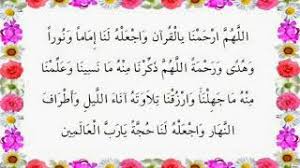 اللَّهُمَّ ارْحَمْنَا بِالْقُرْآنِ وَاجْعَلْهُ لَنَا إِمَاماً وَنُوراً
وَهُدًى وَرَحْمَةً اللَّهُمَّ ذَكِّرْنَا مِنْهُ مَا نَسِينَا وَعَلِّمْنَا
مِنْهُ مَا جَهِلْنَا وَارْزُقْنَا تِلَاوَتَهُ آنَاءَ اللَّيْلِ وَأَطْرَافَ
النَّهَارِ وَاجْعَلْهُ لَنَا حُجَّةً يَارَبَّ الْعَالَمِينَ